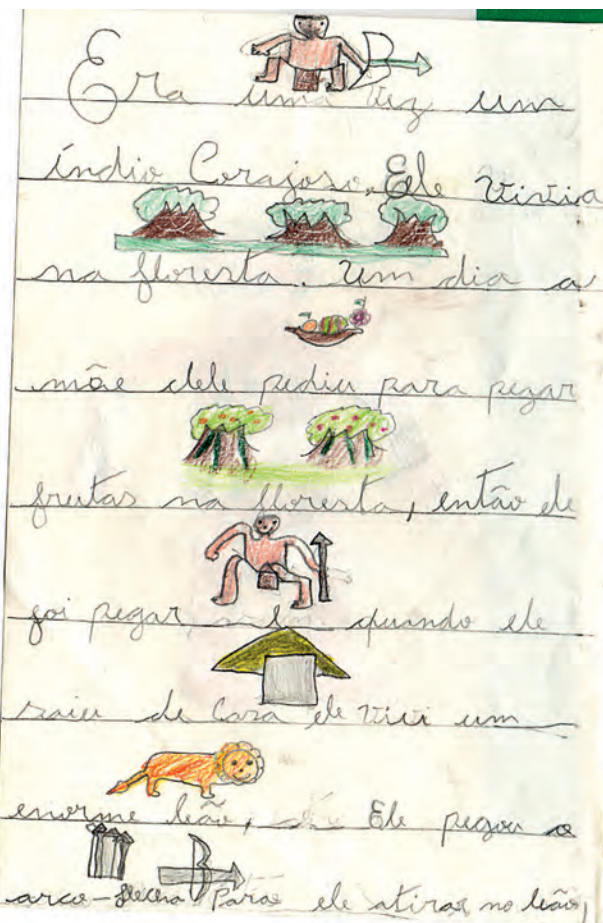 Era uma vez um
índio Corajoso. Ele vivia
na floresta. Um dia a
mãe dele pediu para pegar
frutas na floresta, então ele
foi pegar, quando ele
saiu de casa ele viu um
enorme leão, Ele pegou o
arco-flecha Para ele atirar no leão,